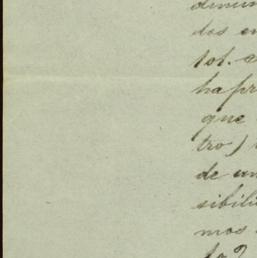 dos en
tot. a
ha pr
que
tro)
de un
sibili
mos
ta?